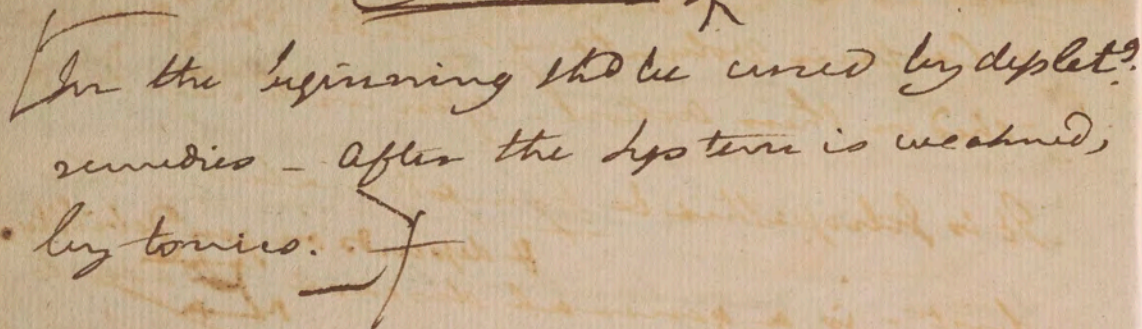 [In the beginning shd be cured by depletg.
remedies - after the system is weakned,
by tonics. _ ]